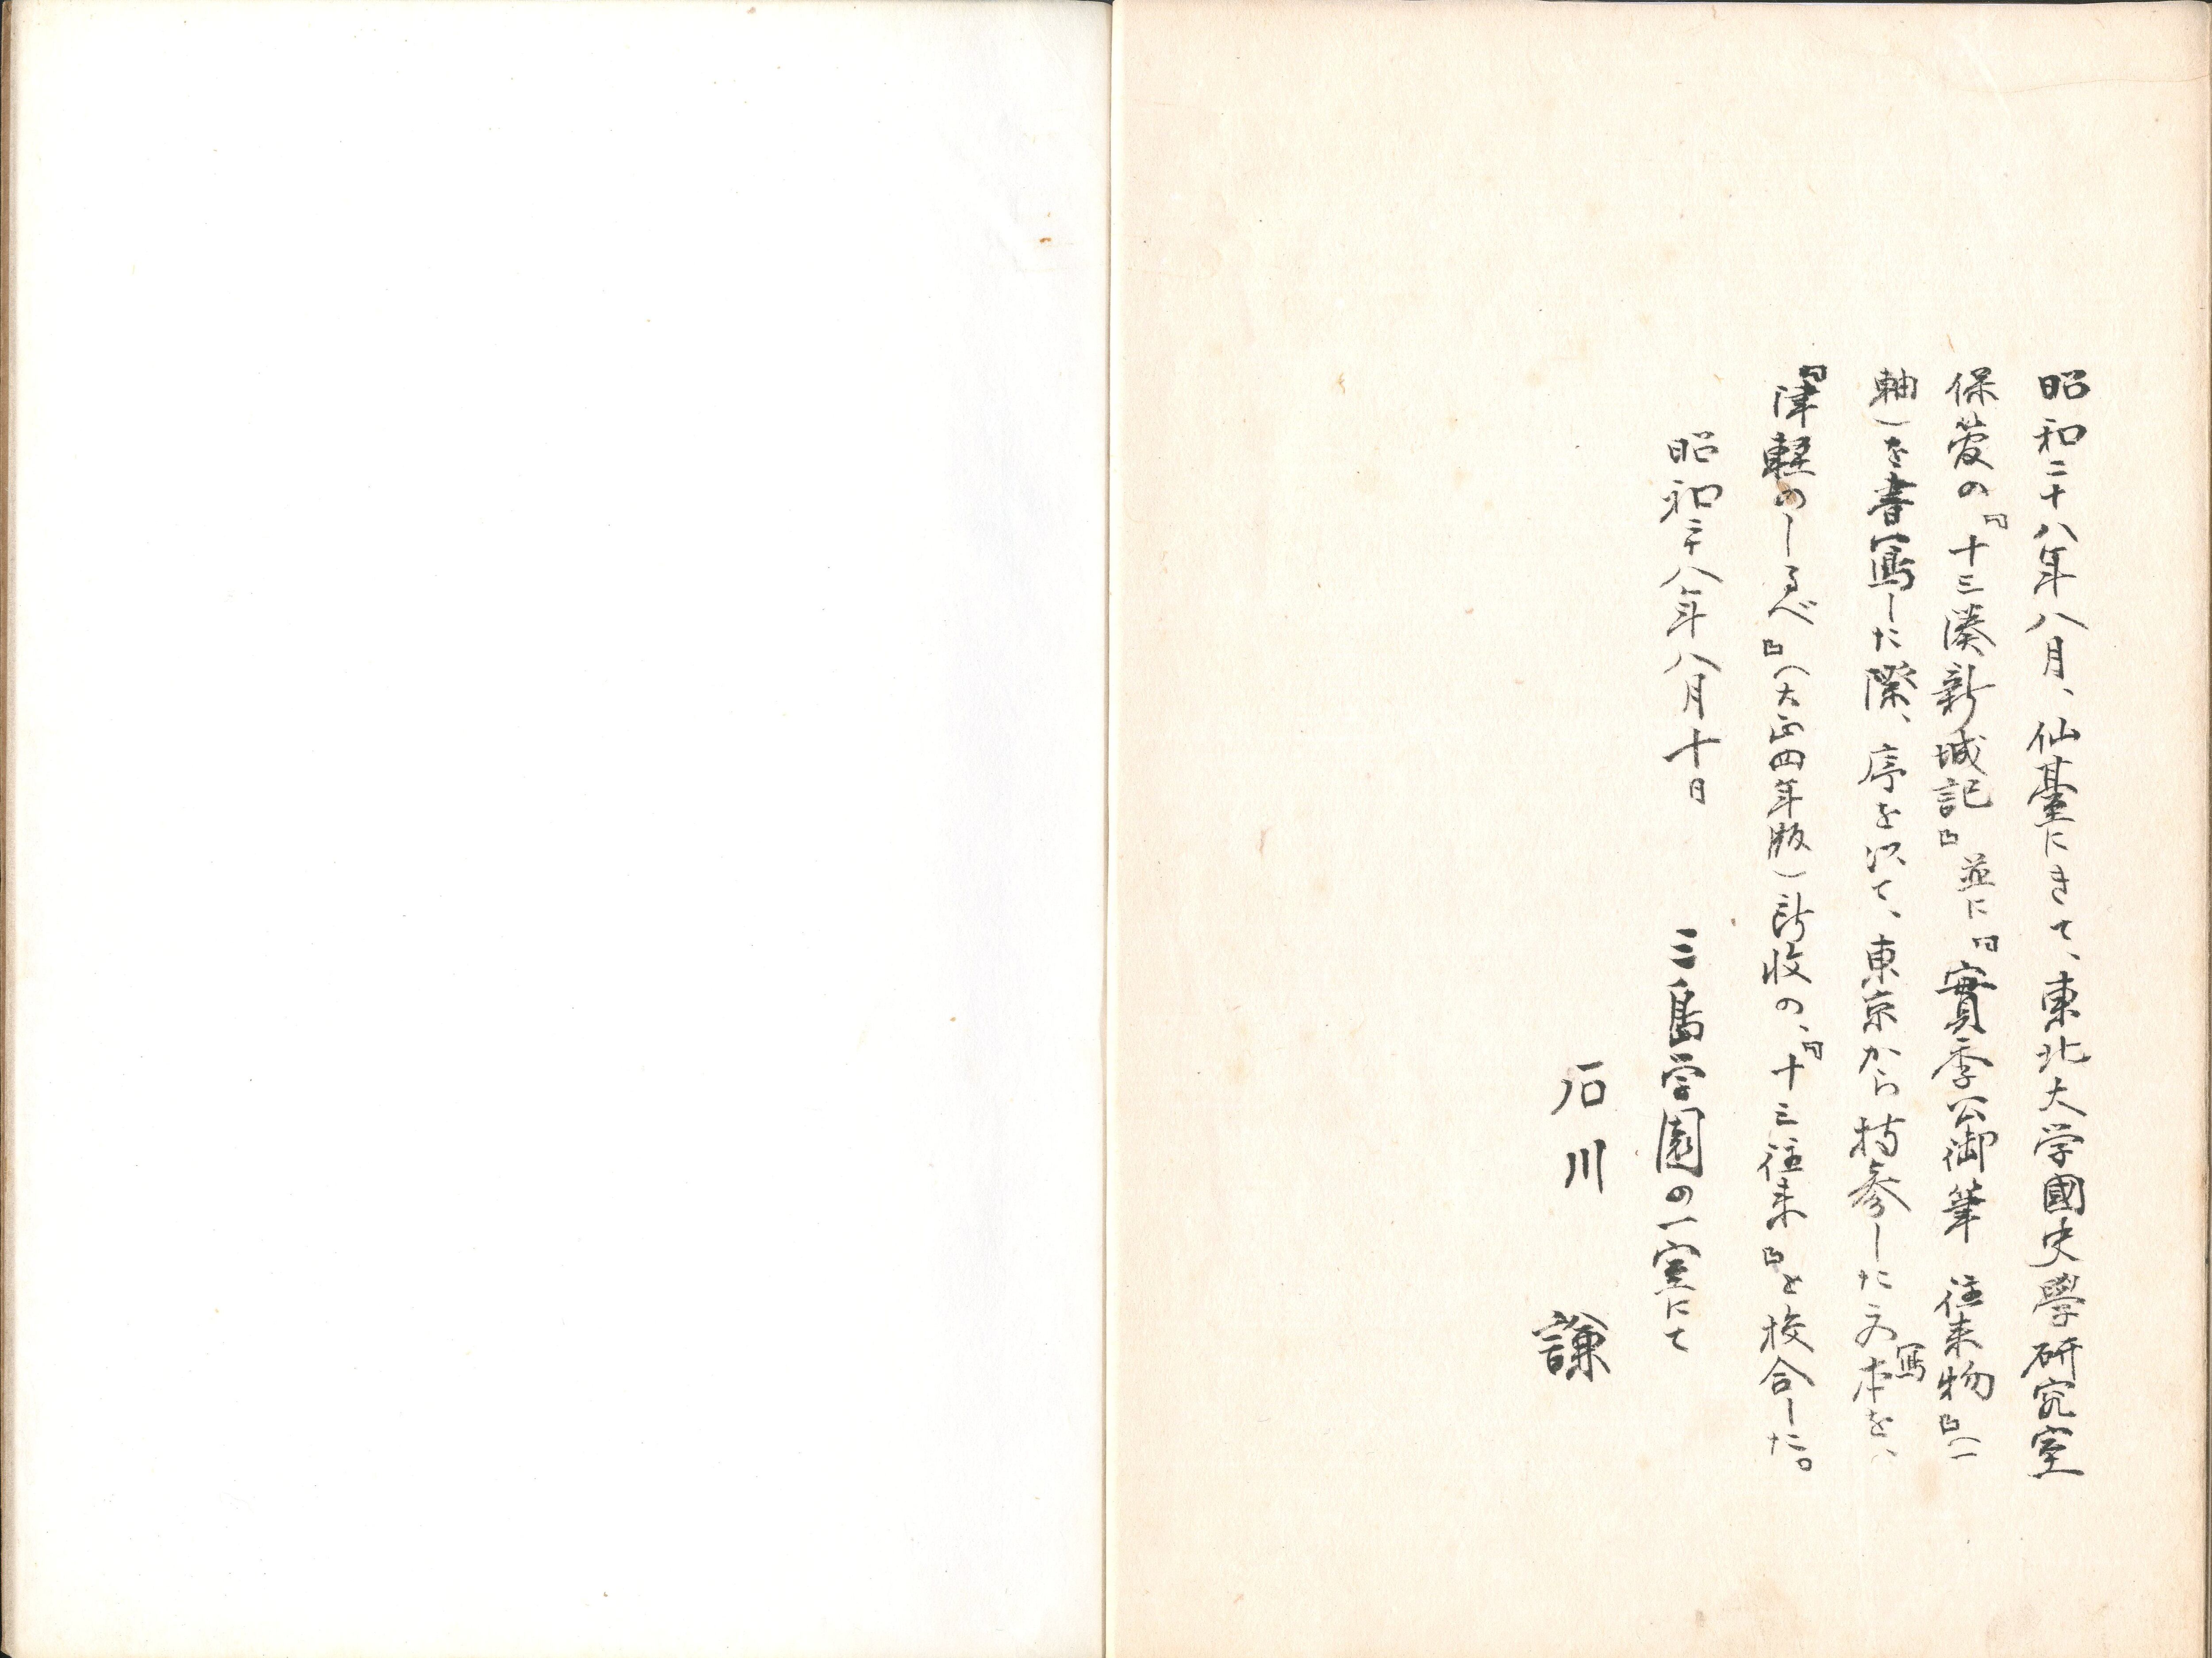 昭和二十八年八月、仙臺にきて、東北大学國史學研究室
保管の『十三湊新城記』並に『實季公御筆 往来物』(一
軸)を書寫した際、序を以て、東京から持参した寫本を、
『津軽のしるべ』(大正四年版)所收の、『十三往来』と校合した。
昭和二十八年八月十日 三島学園の一室にて
石川 謙